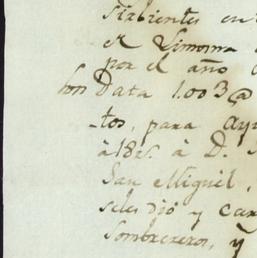 Sirbientes en
el Limosna
por el año
Data 1.003@
-tos, para ayu
à 1825. à D.
San Miguel,
seles dió y car
Sombrereros, y